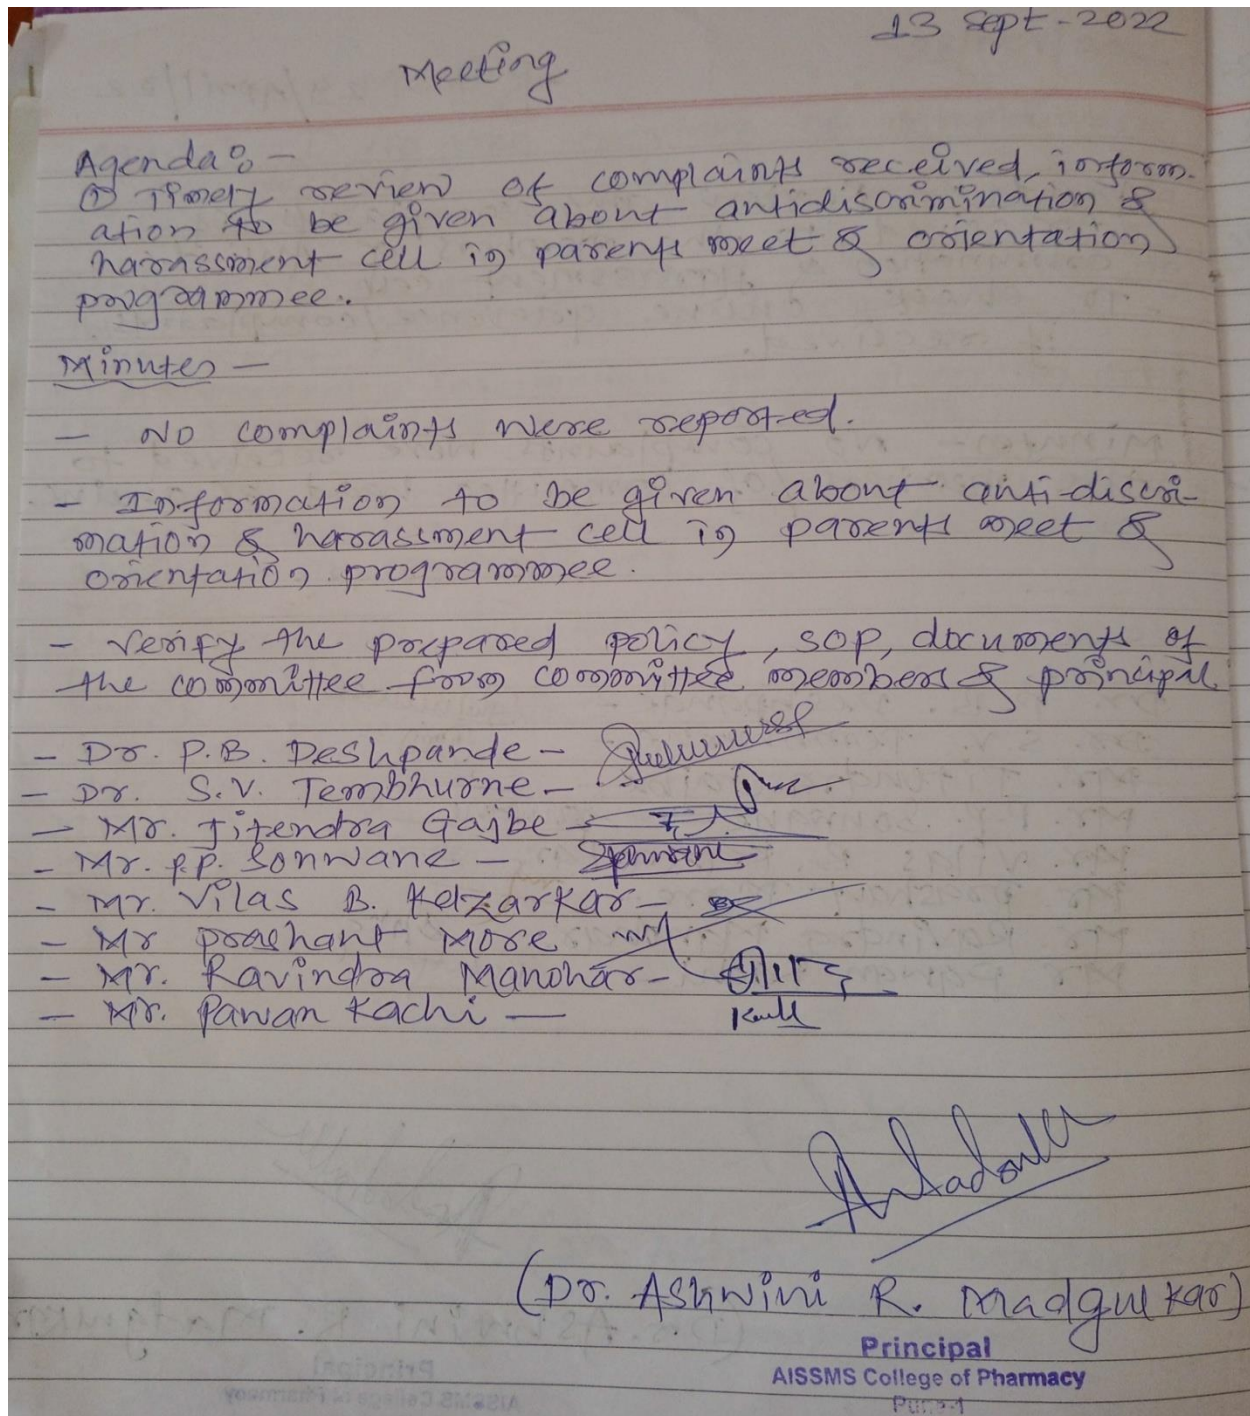 13 Sept-2022
Meeting
Agenda:-
① Timely review of complaints received, inform-
ation to be given about antidiscrimination &
harassment cell in parents meet & orientation
programmee.
Minutes -
- No complaints were reported.
- Information to be given about anti-discri-
mation & harassment cell in parents meet &
orientation programmee.
- Verify the prepared policy, SOP, documents of
the committee from committee members & principal.
- Dr. P.B. Deshpande -
- Dr. S.V. Tembhurne -
- Mr. Jitendra Gajbe -
- Mr. P.P. Sonwane -
- Mr. Vilas B. Kelzarkar -
- Mr Prashant More
- Mr. Ravindra Manohar -
- Mr. Pawan Kachi -
(Dr. Ashwini R. Madgulkar)
Principal
AISSMS College of Pharmacy
Pune-1